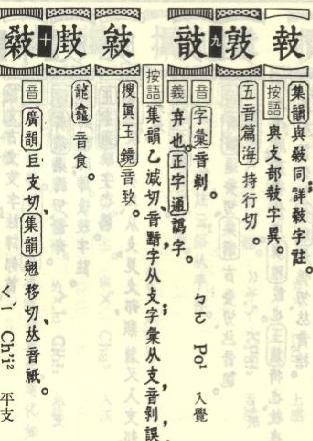 集韻與敊同詳敊字註。
按語 與攴部敊字異。
五音篇海 持行切。
九
音 字彙音剝。 ㄅㄛ Po¹ 入覺
義 弃也。正字通譌字。
按語 集韻乙減切、音黯字从攴字彙从支音剝誤
搜眞玉鏡 音
龍龕 音食。
十
音 廣韻巨支切、集韻翹移切、𠀤音祇。 ㄑㄧˊ Ch'i² 平支